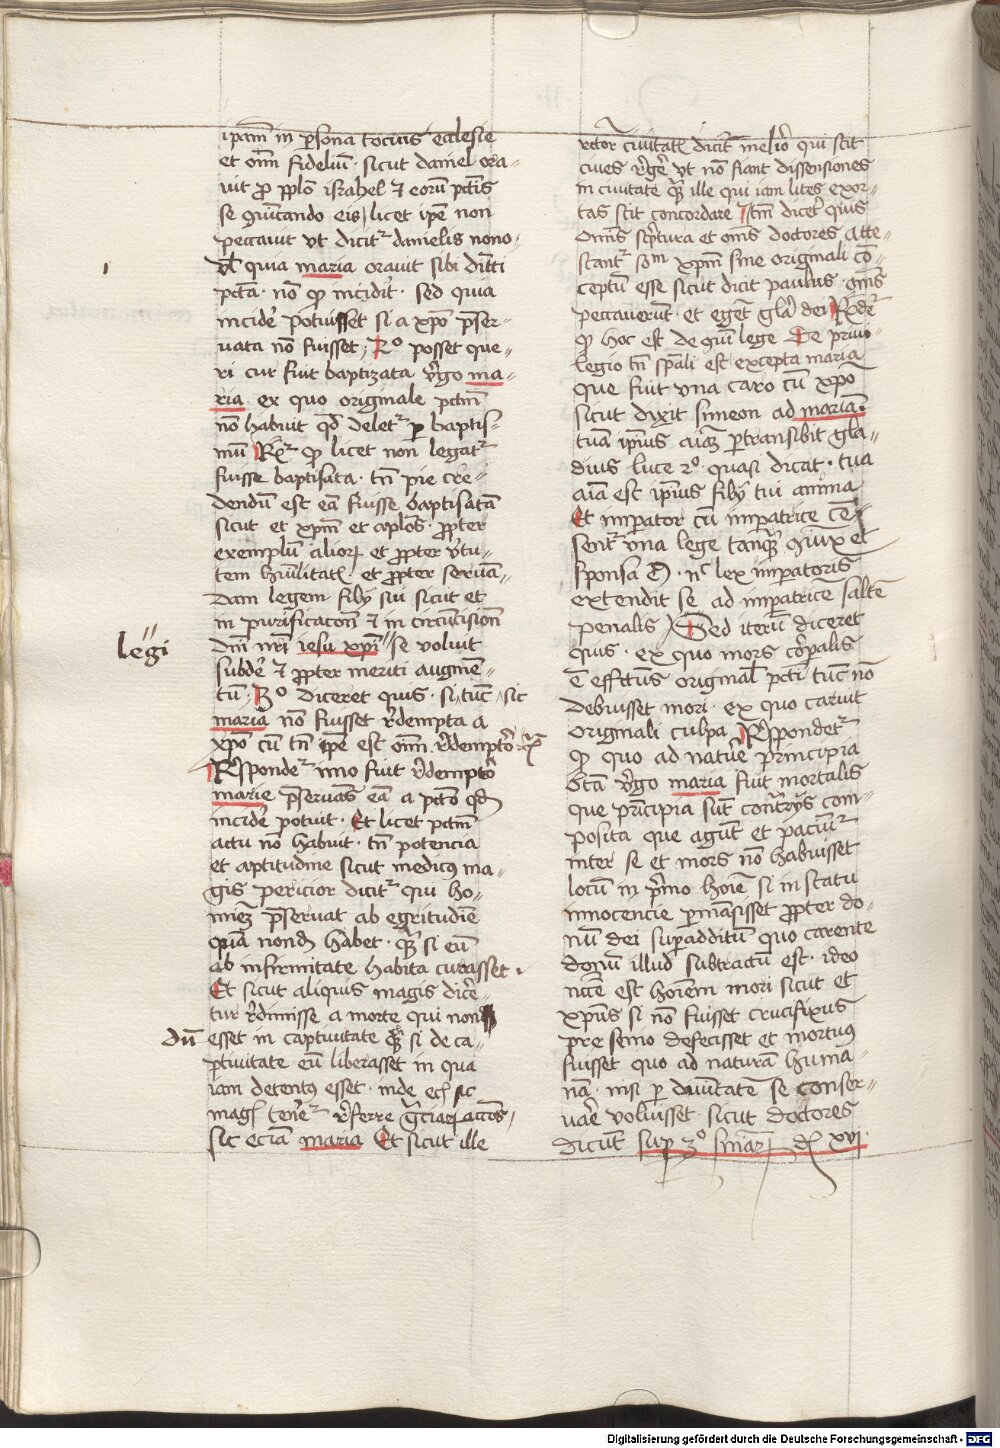 ipam̄ in ꝑsona tocius ecclesie
et om̄ fideliū · sicut daniel ora-
uit ꝓ pplo israhel ⁊ eorū pctīs
se ꝯūitando eis / licet ipē non
peccauit vt dicit᷑ danielis nono ·
vl̄ quia maria orauit sibi dītti
pctā · nō ꝙ incidit · sed quia
incidē potuisset si a xp̄o p̄ser-
uata nō fuisset / R̊ posset que-
ri cur fuit baptizata v̓go ma-
ria · ex quo originale pctm̄
nō habuit qd̄ delet᷑ ꝑ baptis-
mū Rn̄᷑ ꝙ licet non legat᷑
fuisse baptisata · tn̄ pie cre-
dendū est eā fuisse baptisatā
sicut et xp̄m et apl̄os · ꝓpter
exemplū alioꝝ et ꝓpter v̓tu-
tem hūilitatꝭ · et ꝓpter seruā-
dam legem filij sui sicut et
in purificacōn̄ ⁊ in circūcisiōn
legi
dn̄i nr̄i iesu xp̄i se voluit
subdē ⁊ ꝓpter meriti augmē-
tū · R̊ diceret quis · si tūc sic
maria nō fuisset r̓dempta a
xp̄o cū tn̄ ipē est om̄ r̓demptor
Rñsponde᷑ imo fuit r̓demptor
marie p̄seruās eā a pctō qd̄
incidē potuit · Et licet pctm̄
actu nō habuit · tn̄ potencia
et aptitudine sicut medicꝰ ma-
gis pericior dicit᷑ qui ho-
mīez p̄seruat ab egritudīe
quā nond̄ habet · qᷓ si eū
ab infirmitate habita curasset ·
Et sicut aliquis magis dicē-
tur r̓dimisse a morte qui nond̄
dū esset in captiuitate qᷓ si de ca-
ptiuitate eū liberasset in qua
iam detentꝰ esset · inde ecꝭ sic
magꝭ tenē᷑ r̓ferre gr̄ciaꝝ accōs ·
sic eciā maria Et sicut ille
rector ciuitatꝭ dicit᷑ melior qui scit
ciues r̓gē vt nō fiant dissensiones
in ciuitate qᷓ ille qui iam lites exor-
tas scit concordare Itm̄ dicet᷑ quis
Om̄s scp̄tura et om̄s doctores atte-
stant᷑ som xp̄m sine originali cō-
ceptū esse sicut dicit paulus · om̄s
peccauerūt · et egēt glā dei Rñdē᷑
ꝙ hoc est de ꝯmūi lege De priui-
legio tn̄ spāli est excepta maria
que fuit vna caro cū xp̄o
sicut dixit simeon ad mariā ·
tuā ipīus aīaz ꝑtransibit gla-
dius luce 2º · quasi dicat · tua
aīa est ipīus filij tui anima
Et imperator cū impatrice cē-
sent᷑ vna lege tanqᷓ ꝯiux et
sponsa · nᶜ lex imperatoris
extendit se ad impatricē saltē
penalis / Sed iterū diceret
quis · ex quo mors corꝑalis
ē effctūs originalꝭ pcti tūc nō
debuisset mori · ex quo caruit
originali culpa Rñspondet᷑
ꝙ quo ad natūe principia
btā v̓go maria fuit mortalis
que prīcipia sūt contrrijs com-
posita que agūt et paciūt᷑
inter se et mors nō habuisset
locū in p̄mo hoīe si in statu
innocencie ꝑmāsisset ꝓpter do-
nū dei supadditū quo carente
donū illud subtractū est · ideo
nc̄ē est hoīem mori sicut et
xp̄us si nō fuisset crucifixus
pre senio defecisset et mortuꝰ
fuisset quo ad naturā huma-
nā · nisi ꝑ diuītatē se conser-
uaē voluisset sicut doctores
dicūt suꝑ 3º sn̄iaꝝ dꝭ xvj ·
Digitalisierung gefördert durch die Deutsche Forschungsgemeinschaft - DFG